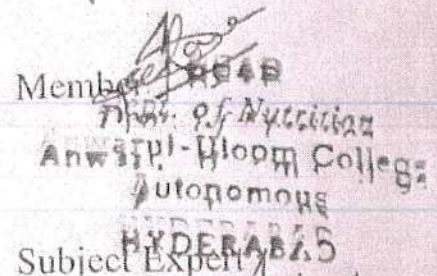 Member HEAD
Dept. of Nutrition
Anwarul-Uloom College
Autonomous
HYDERABAD
Subject Expert